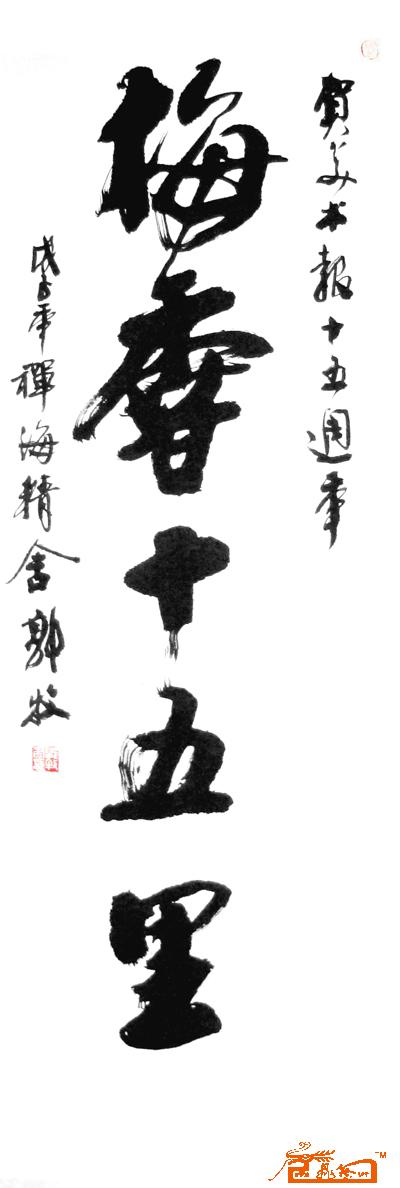 賀美术報十五週年
梅香十五里
戊子年禪海精舍郭牧